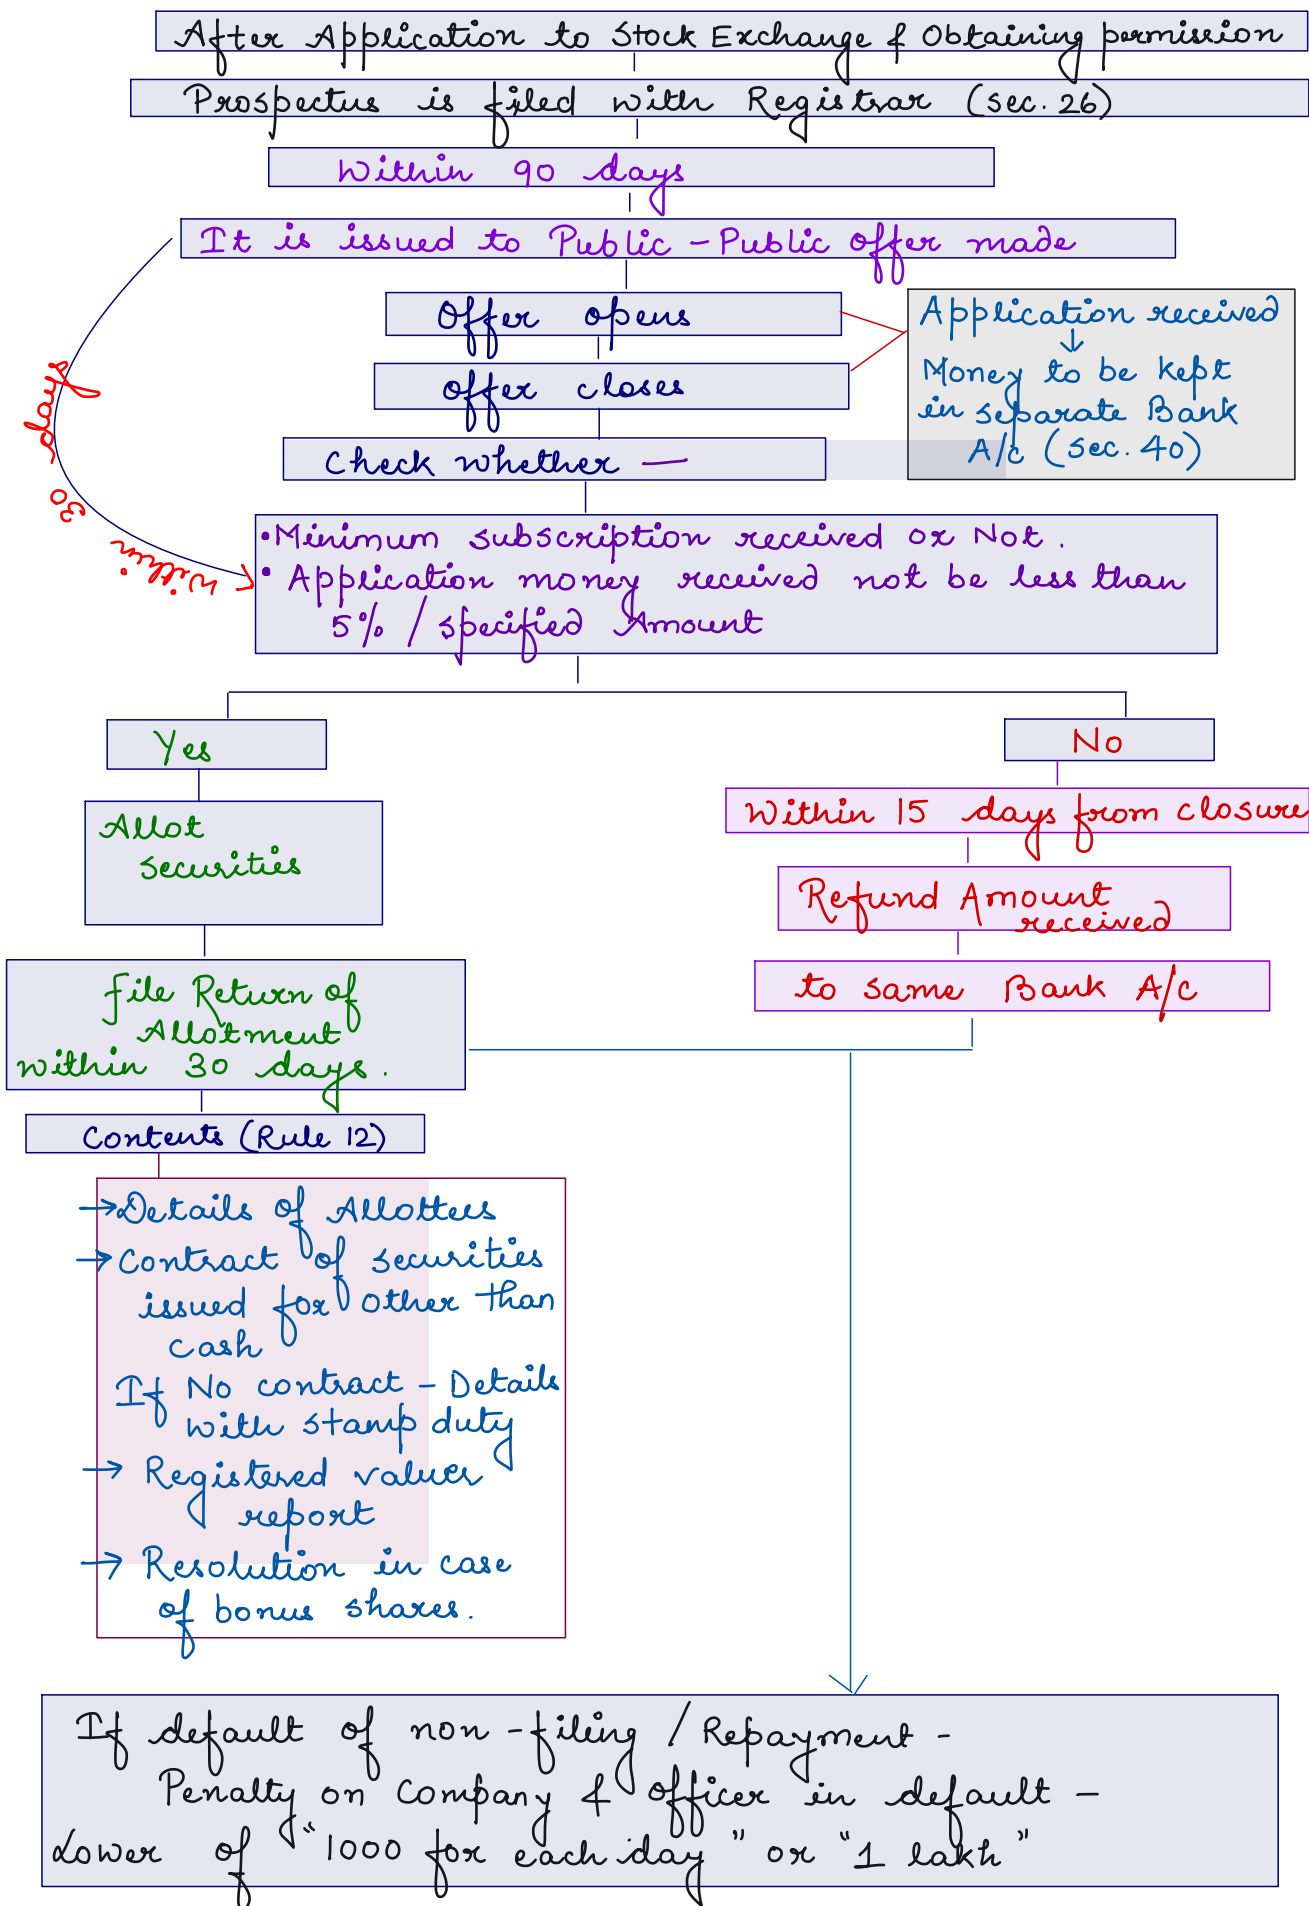 After Application to Stock Exchange & Obtaining permission
Prospectus is filed with Registrar (sec. 26)
Within 90 days
It is issued to Public - Public offer made
Offer opens
offer closes
Check whether —
Application received
↓
Money to be kept
in separate Bank
A/c (sec. 40)
within 30 days
• Minimum subscription received or Not.
• Application money received not be less than
5% / specified Amount
Yes
Allot
securities
file Return of
Allotment
within 30 days.
Contents (Rule 12)
→ Details of Allottees
→ Contract of securities
issued for other than
cash
If No contract - Details
with stamp duty
→ Registered valuer
report
→ Resolution in case
of bonus shares.
No
Within 15 days from closure
Refund Amount
received
to same Bank A/c
If default of non-filing / Repayment -
Penalty on Company & officer in default -
Lower of "1000 for each day" or "1 lakh"